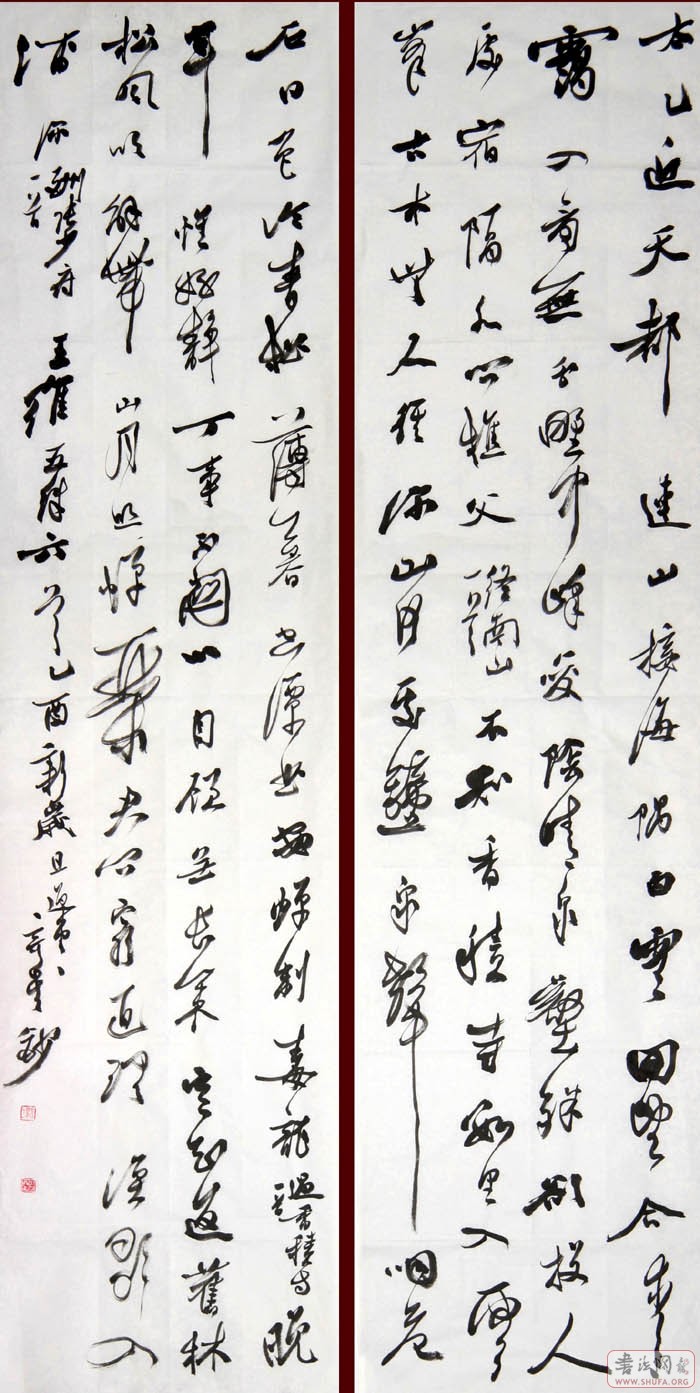 太乙近天都連山接海隅白雲回望合青
靄入看無分野中峰變陰晴衆壑殊欲投人
處宿隔水問樵父終南山一首不知香積寺數里入雲
峰古木無人徑深山何處鐘泉聲咽危
石日色冷青松薄暮空潭曲安禪制毒龍過香積寺一首晚
年惟好靜万事不關心自顧無長策空知返舊林
松風吹解帶山月照彈琴君問窮通理漁歌入
浦深酬張少府一首王維五律六首乙酉新歲旦鈔
书法网报
WWW.SHUFA.ORG